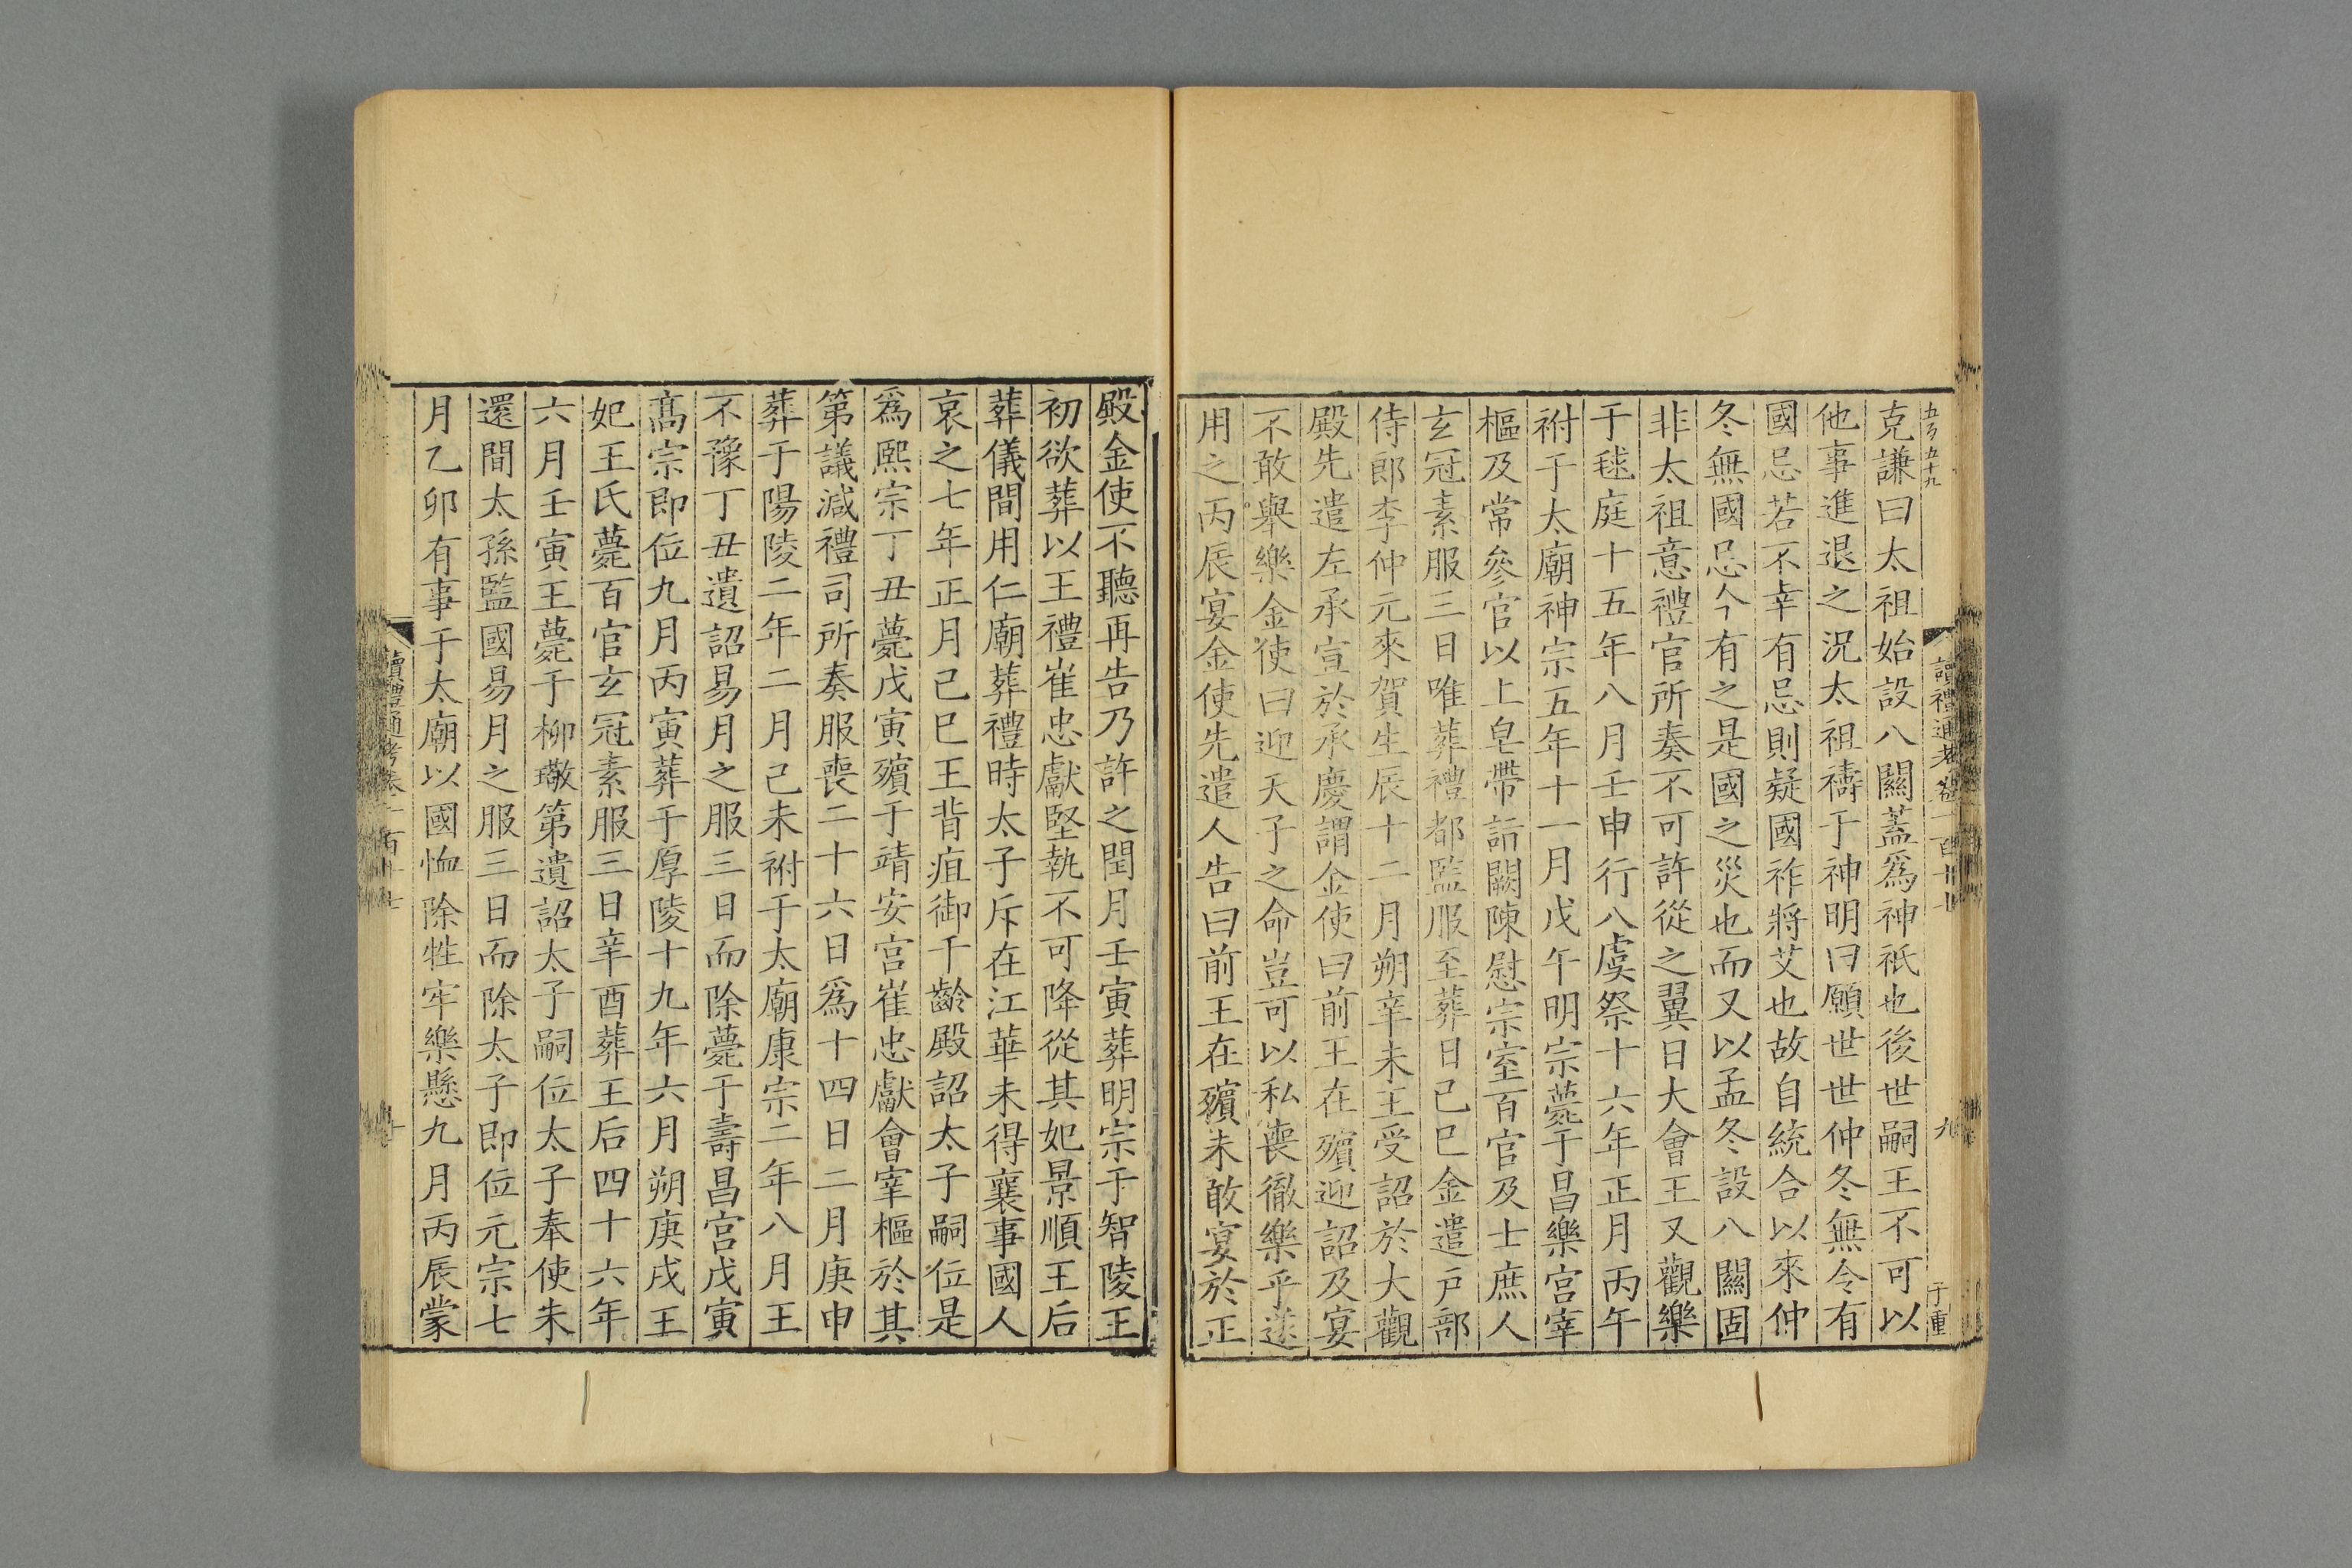 五百五十九
讀禮通考卷一百十七
九
于重
克謙曰太祖始設八關蓋爲神祇也後世嗣王不可以
他事進退之況太祖禱于神明曰願世世仲冬無令有
國忌若不幸有忌則疑國祚將艾也故自統合以來仲
冬無國忌今有之是國之災也而又以孟冬設八關固
非太祖意禮官所奏不可許從之翼日大會王又觀樂
于毬庭十五年八月壬申行八虞祭十六年正月丙午
祔于太廟神宗五年十一月戊午明宗薨于昌樂宮宰
樞及常參官以上皂帶詣闕陳慰宗室百官及士庶人
玄冠素服三日唯葬禮都監服至葬日己巳金遣戸部
侍郎李仲元來賀生辰十二月朔辛未王受詔於大觀
殿先遣左承宣於承慶謂金使曰前王在殯迎詔及宴
不敢舉樂金使曰迎天子之命豈可以私喪徹樂乎遂
用之丙辰宴金使先遣人告曰前王在殯未敢宴於正
殿金使不聽再告乃許之閏月壬寅葬明宗于智陵王
初欲葬以王禮崔忠獻堅執不可降從其妃景順王后
葬儀間用仁廟葬禮時太子斥在江華未得襄事國人
哀之七年正月己巳王背疽御千齡殿詔太子嗣位是
爲熙宗丁丑薨戊寅殯于靖安宮崔忠獻會宰樞於其
第議減禮司所奏服喪二十六日爲十四日二月庚申
葬于陽陵二年二月己未祔于太廟康宗二年八月王
不豫丁丑遺詔易月之服三日而除薨于壽昌宮戊寅
高宗即位九月丙寅葬于厚陵十九年六月朔庚戌王
妃王氏薨百官玄冠素服三日辛酉葬王后四十六年
六月壬寅王薨于柳璥第遺詔太子嗣位太子奉使未
還間太孫監國易月之服三日而除太子即位元宗七
月乙卯有事于太廟以國恤除牲牢樂懸九月丙辰蒙
讀禮通考卷一百十七
十